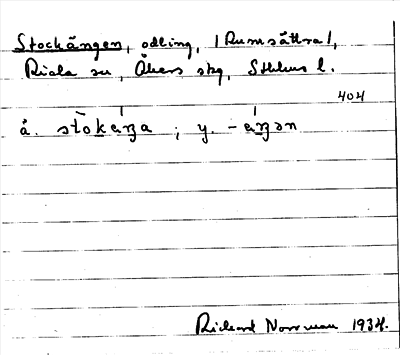 Stockängen, odling, (Rumsättra),
Riala sn, Åkers skg, Sthlms l.
404
ä. stokäŋa ; y. -äŋən
Richard Norrman 1934.